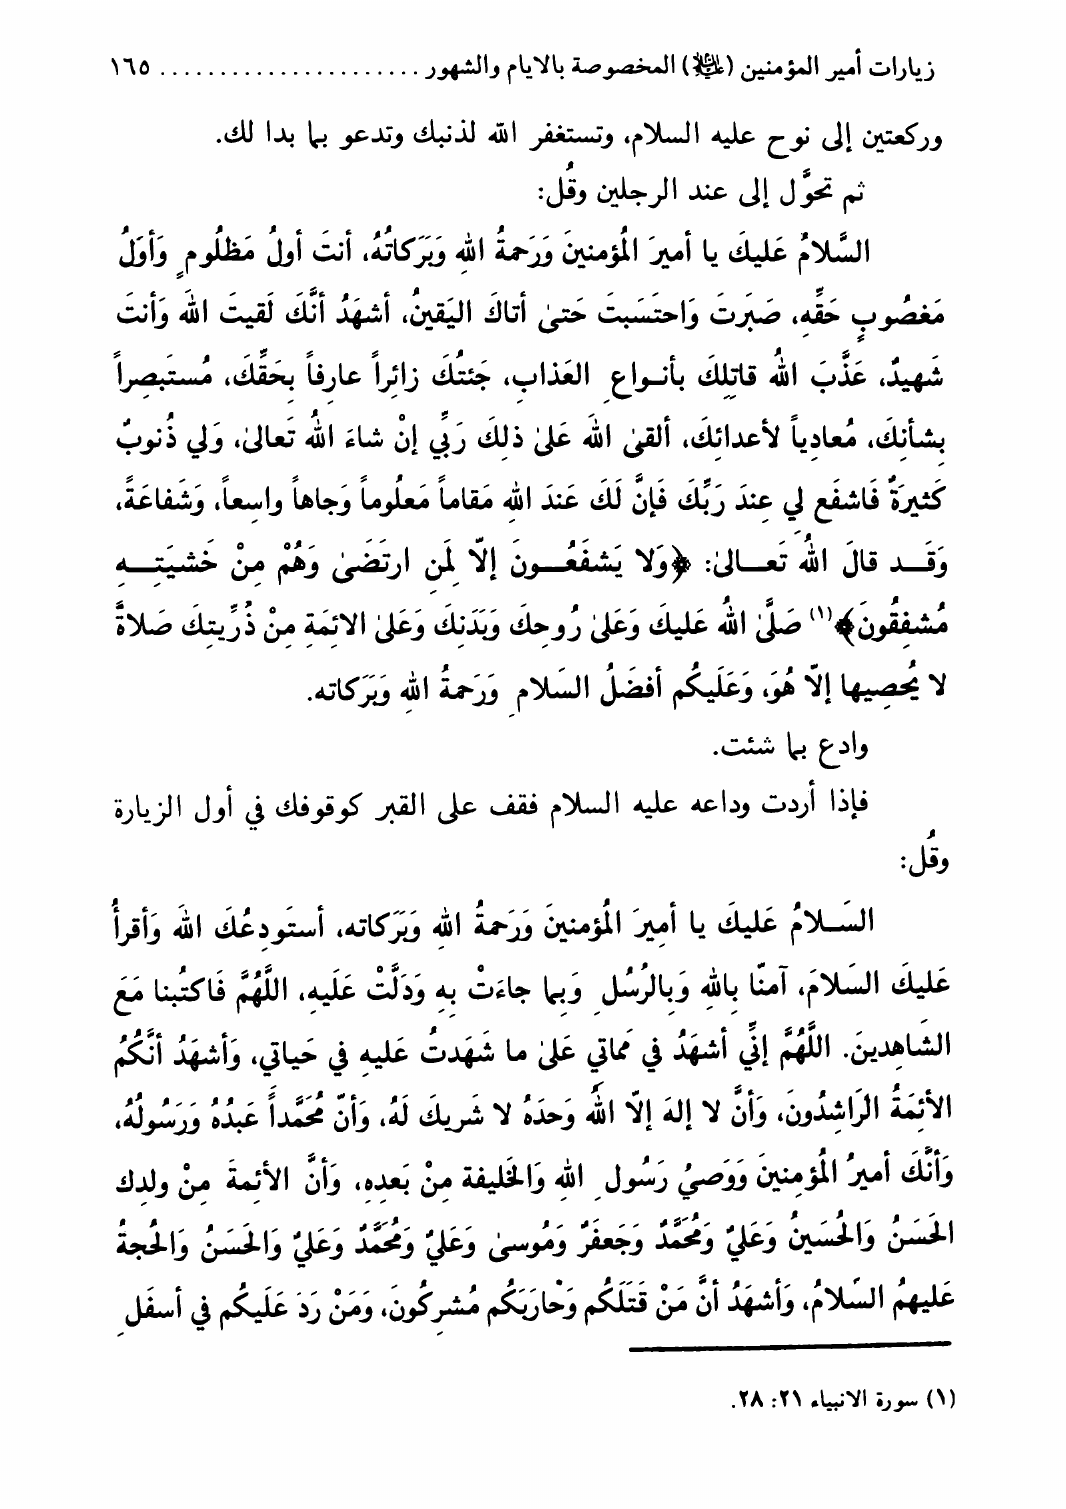 زيارات أمير المؤمنين (عليه السلام) المخصوصة بالايام والشهور ...................... ١٦٥
وركعتين إلى نوح عليه السلام، وتستغفر الله لذنبك وتدعو بما بدا لك.
ثم تحوَّل إلى عند الرجلين وقُل:
السَّلامُ عَليكَ يا أميرَ المُؤمنينَ وَرَحمةُ اللهِ وَبَرَكاتُهُ، أنتَ أولُ مَظلُومٍ وَأوَلُ
مَغصُوبٍ حَقّهِ، صَبَرتَ وَاحتَسَبتَ حَتىٰ أتاكَ اليَقينُ، أشهَدُ أنَّكَ لَقيتَ اللهَ وَأنتَ
شَهيدٌ، عَذَّبَ اللهُ قاتِلِكَ بأنـواعِ العَذابِ، جَئتُكَ زائِراً عارِفاً بِحَقِّكَ، مُستَبصِراً
بِشأنِكَ، مُعادِياً لأعدائِكَ، ألقىٰ اللهَ عَلىٰ ذلِكَ رَبّي إنْ شاءَ اللهُ تَعالىٰ، وَلي ذُنوبٌ
كَثيرَةٌ فَاشفَع لي عِندَ رَبِّكَ فَإنَّ لَكَ عَندَ اللهِ مَقاماً مَعلُوماً وَجاهاً واسِعاً، وَشَفاعَةً،
وَقَـــد قالَ اللهُ تَعـــالىٰ: ﴿وَلا يَشفَعُـــونَ إلاّ لِمَنِ ارتَضَىٰ وَهُمْ مِنْ خَشيَتِـــهِ
مُشفِقُونَ﴾(١) صَلَّىٰ اللهُ عَليكَ وَعَلىٰ رُوحِكَ وَبَدَنِكَ وَعَلىٰ الائِمَةِ مِنْ ذُرِّيتِكَ صَلاةً
لا يُحصِيها إلاّ هُوَ، وَعَلَيكُم أفضَلُ السَلامِ وَرَحمةُ اللهِ وَبَرَكاته.
وادع بما شئت.
فإذا أردت وداعه عليه السلام فقف على القبر كوقوفك في أول الزيارة
وقُل:
السَـلامُ عَليكَ يا أمِيرَ المُؤمنينَ وَرَحمةُ اللهِ وَبَرَكاته، أستَودِعُكَ اللهَ وَأقرأُ
عَليكَ السَلامَ، آمنّا بِاللهِ وَبِالرُسُلِ وَبِما جاءَتْ بِهِ وَدَلَّتْ عَلَيهِ، اللَّهُمَّ فَاكتُبنا مَعَ
الشَاهِدينَ. اللَّهُمَّ إنّي أشهَدُ في مَماتي عَلىٰ ما شَهَدتُ عَليهِ في حَياتي، وَأشهَدُ أنَّكُمُ
الأئِمَةُ الرَاشِدُونَ، وَأنَّ لا إلهَ إلاّ اللهُ وَحدَهُ لا شَريكَ لَهُ، وَأنّ مُحَمَّداً عَبدُهُ وَرَسُولُهُ،
وَأنَّكَ أميرُ المُؤمِنينَ وَوَصيُ رَسُولِ اللهِ وَالخَليفة مِنْ بَعدِهِ، وَأنَّ الأئِمةَ مِنْ ولدِك
الحَسَنُ وَالحُسَينُ وَعَليٌ وَمُحَمَّدٌ وَجَعفَرٌ وَمُوسىٰ وَعَليٌ وَمُحَمَّدٌ وَعَليٌ وَالحَسَنُ وَالحُجةُ
عَليهمُ السَلامُ، وَأشهَدُ أنَّ مَنْ قَتَلَكُم وَحْارَبَكُم مُشرِكُونَ، وَمَنْ رَدَ عَلَيكُم في أسفَلِ
(١) سورة الانبياء ٢١: ٢٨.